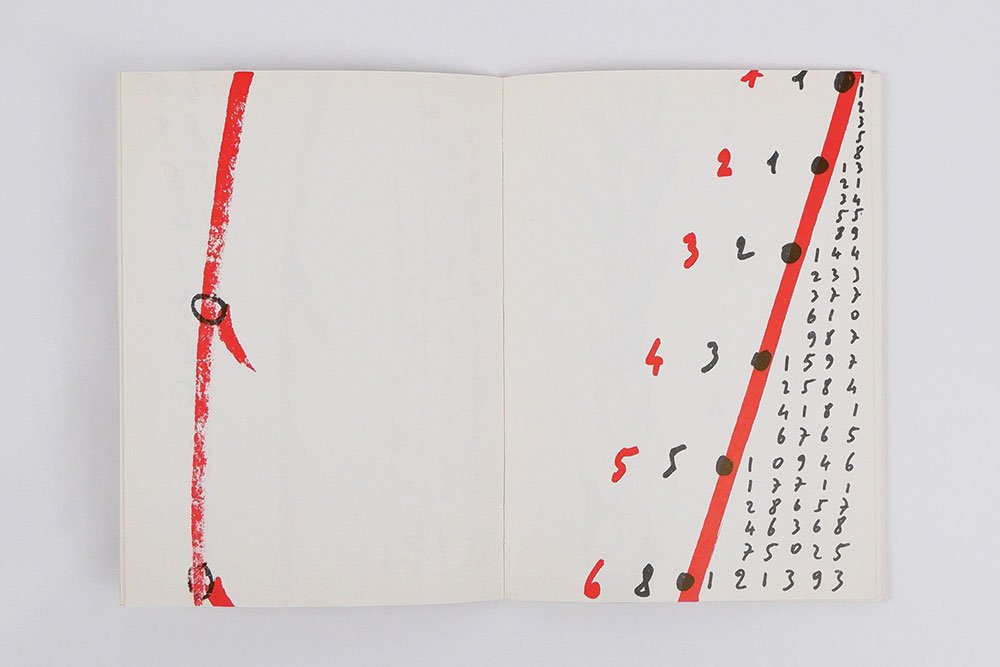 1 1 1
1
2
3
5
8
2 1 1 3
2 1
3 4
5 5
8 9
3 2 1 4 4
2 3 3
3 7 7
6 1 0
9 8 7
4 3 1 5 9 7
2 5 8 4
4 1 8 1
6 7 6 5
5 5 1 0 9 4 6
1 7 7 1 1
2 8 6 5 7
4 6 3 6 8
7 5 0 2 5
6 8 1 2 1 3 9 3